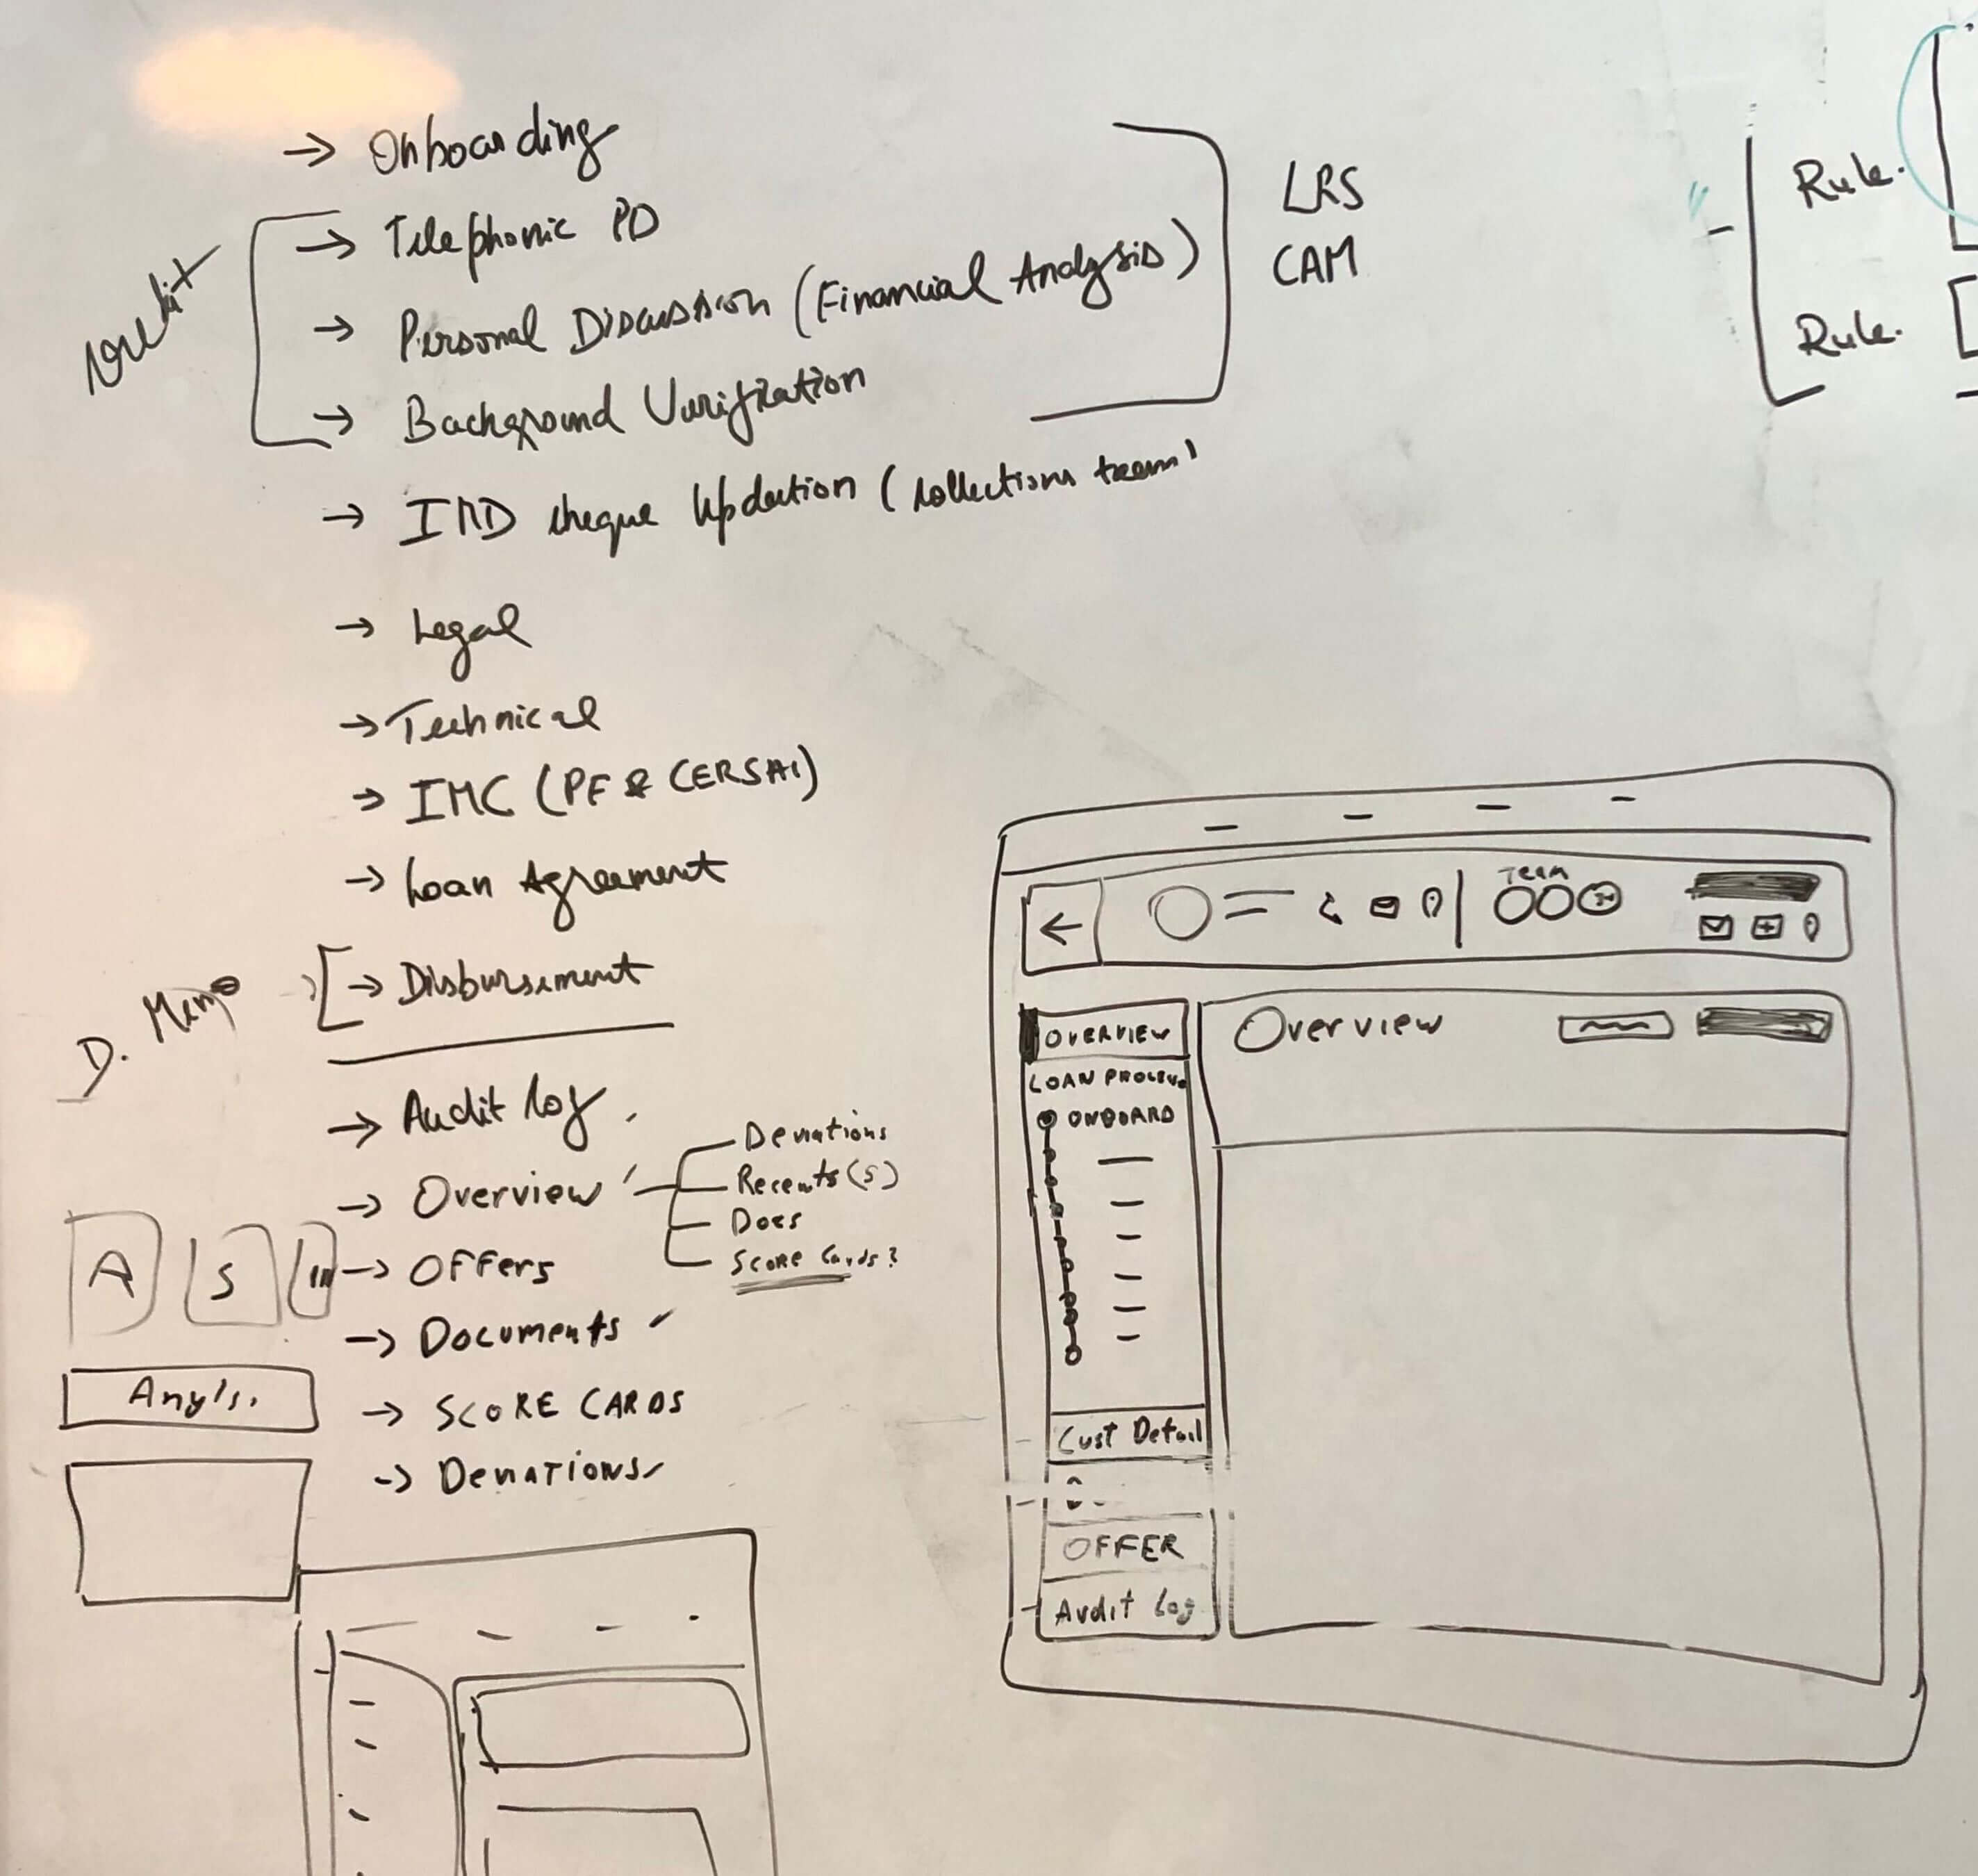 → Onboarding
credit
→ Telephonic PD
→ Personal Discussion (Financial Analysis)
→ Background Verification
LRS
CAM
→ IMD cheque Updation (collections team)
→ Legal
→ Technical
→ IMC (PF & CERSAI)
→ Loan Agreement
D. Memo
→ Disbursement
→ Audit log
→ Overview
Deviations
Recents (5)
Docs
Score Cards?
→ Offers
→ Documents
→ SCORE CARDS
→ Deviations
A S
Anyls.
Rule.
Rule.
Team
OVERVIEW
Overview
LOAN
ONBOARD
Cust Detail
OFFER
Audit Log